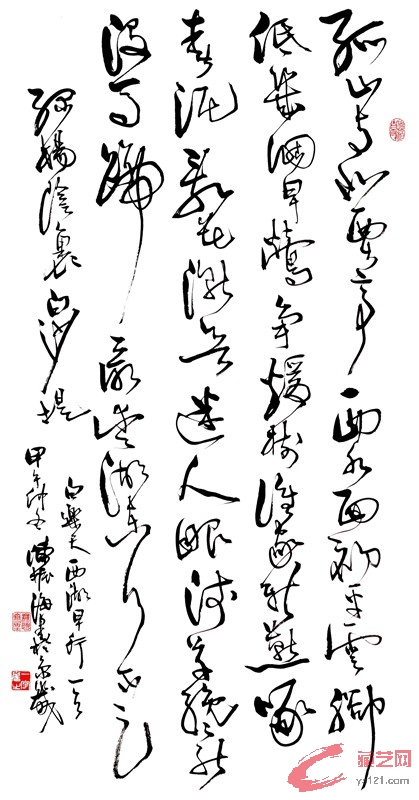 孤山寺北賈亭西水面初平雲腳
低幾處早鶯爭暖樹誰家新燕啄
春泥亂花漸欲迷人眼淺草纔能
沒馬蹄最愛湖東行不足
綠楊陰裏白沙堤
白樂天西湖早行一首
甲午仲陳振海書於京畿
藏艺网
ys1121.com